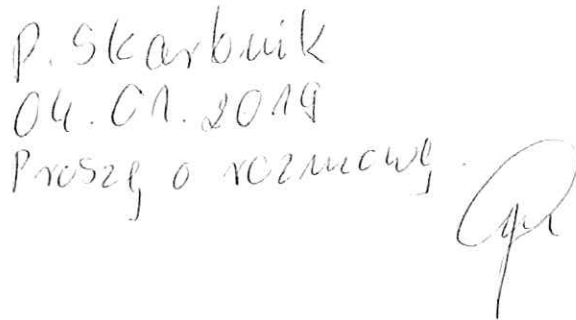 P. Skarbnik
04.01.2019
Proszę o rozmowę.